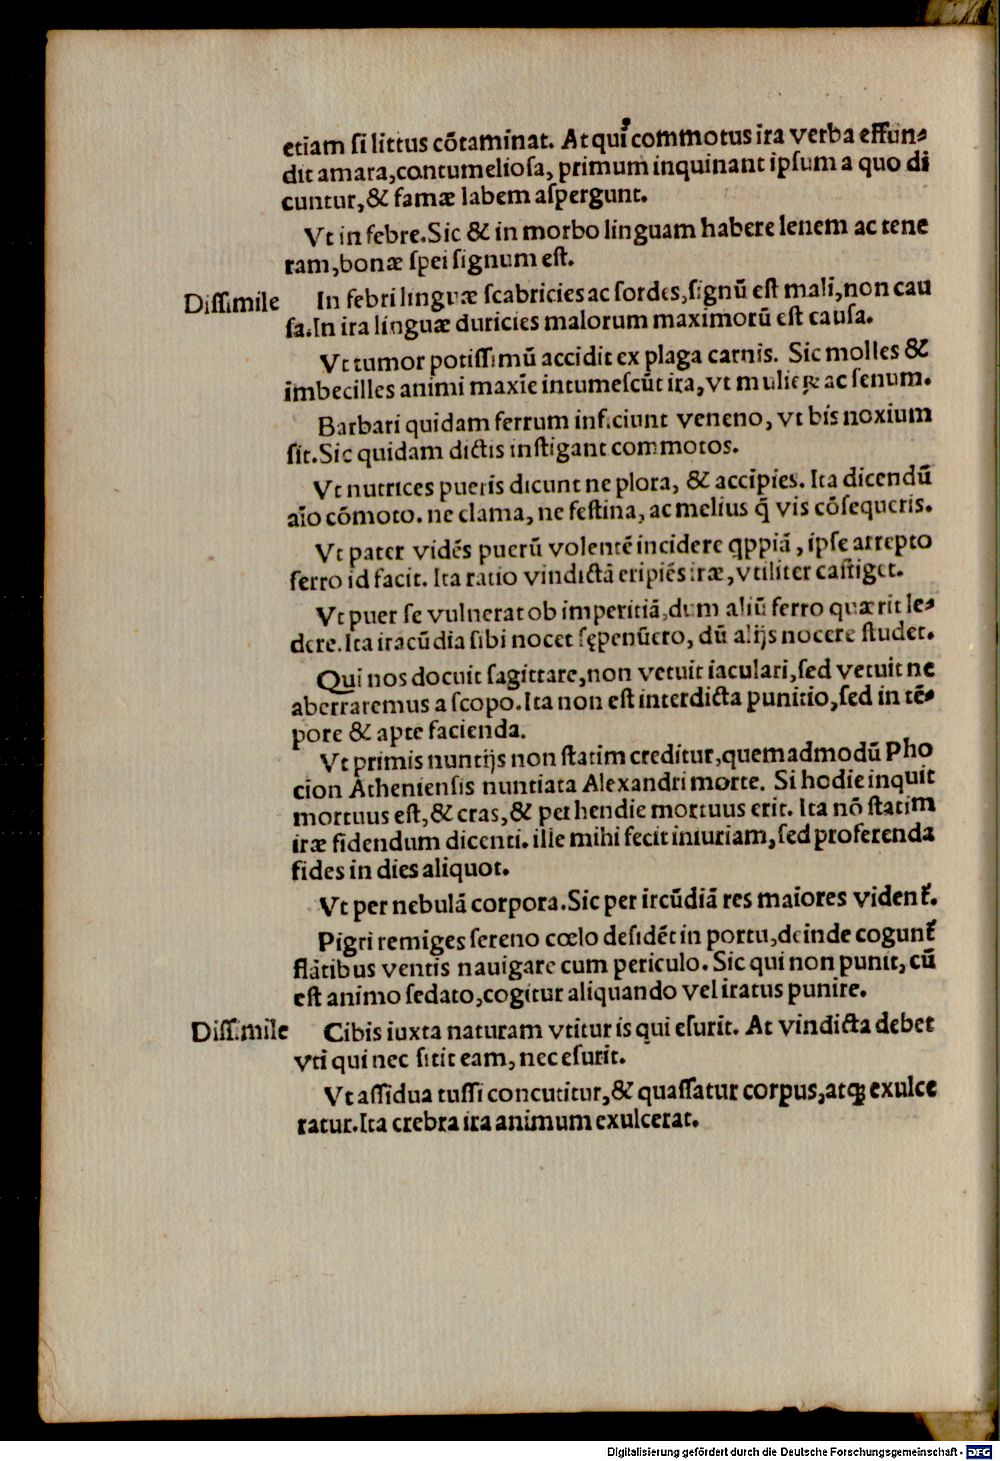 etiam ſi littus cōtaminat. At qui commotus ira verba effun⸗
dit amara, contumelioſa, primum inquinant ipſum a quo di
cuntur, & famæ labem aſpergunt.
Vt in febre. Sic & in morbo linguam habere lenem ac tene
ram, bonæ ſpei ſignum eſt.
Diſſimile In febri linguæ ſcabricies ac ſordes, ſignū eſt mali, non cau
ſa. In ira linguæ duricies malorum maximorū eſt cauſa.
Vt tumor potiſſimū accidit ex plaga carnis. Sic molles &
imbecilles animi maxīe intumeſcūt ira, vt mulieꝝ ac ſenum.
Barbari quidam ferrum inficiunt veneno, vt bis noxium
ſit. Sic quidam dictis inſtigant commotos.
Vt nutrices pueris dicunt ne plora, & accipies. Ita dicendū
aīo cōmoto. ne clama, ne feſtina, ac melius q̄ vis cōſequeris.
Vt pater vidēs puerū volentē incidere qppiā, ipſe arrepto
ferro id facit. Ita ratio vindictā eripiēs iræ, vtiliter caſtiget.
Vt puer ſe vulnerat ob imperitiā, dum aliū ferro quærit le⸗
dere. Ita iracūdia ſibi nocet ſępenūero, dū alijs nocere ſtudet.
Qui nos docuit ſagittare, non vetuit iaculari, ſed vetuit ne
aberraremus a ſcopo. Ita non eſt interdicta punitio, ſed in tē⸗
pore & apte facienda.
Vt primis nuntijs non ſtatim creditur, quemadmodū Pho
cion Athenienſis nuntiata Alexandri morte. Si hodie inquit
mortuus eſt, & cras, & perhendie mortuus erit. Ita nō ſtatim
iræ fidendum dicenti. ille mihi fecit iniuriam, ſed proferenda
fides in dies aliquot.
Vt per nebulā corpora. Sic per ircūdiā res maiores vident᷑.
Pigri remiges ſereno cœlo deſidēt in portu, deinde cogunt᷑
flātibus ventis nauigare cum periculo. Sic qui non punit, cū
eſt animo ſedato, cogitur aliquando vel iratus punire.
Diſſimile Cibis iuxta naturam vtitur is qui eſurit. At vindicta debet
vti qui nec ſitit eam, nec eſurit.
Vt aſſidua tuſſi concutitur, & quaſſatur corpus, atqꝫ exulce
ratur. Ita crebra ira animum exulcerat.
Digitalisierung gefördert durch die Deutsche Forschungsgemeinschaft - DFG